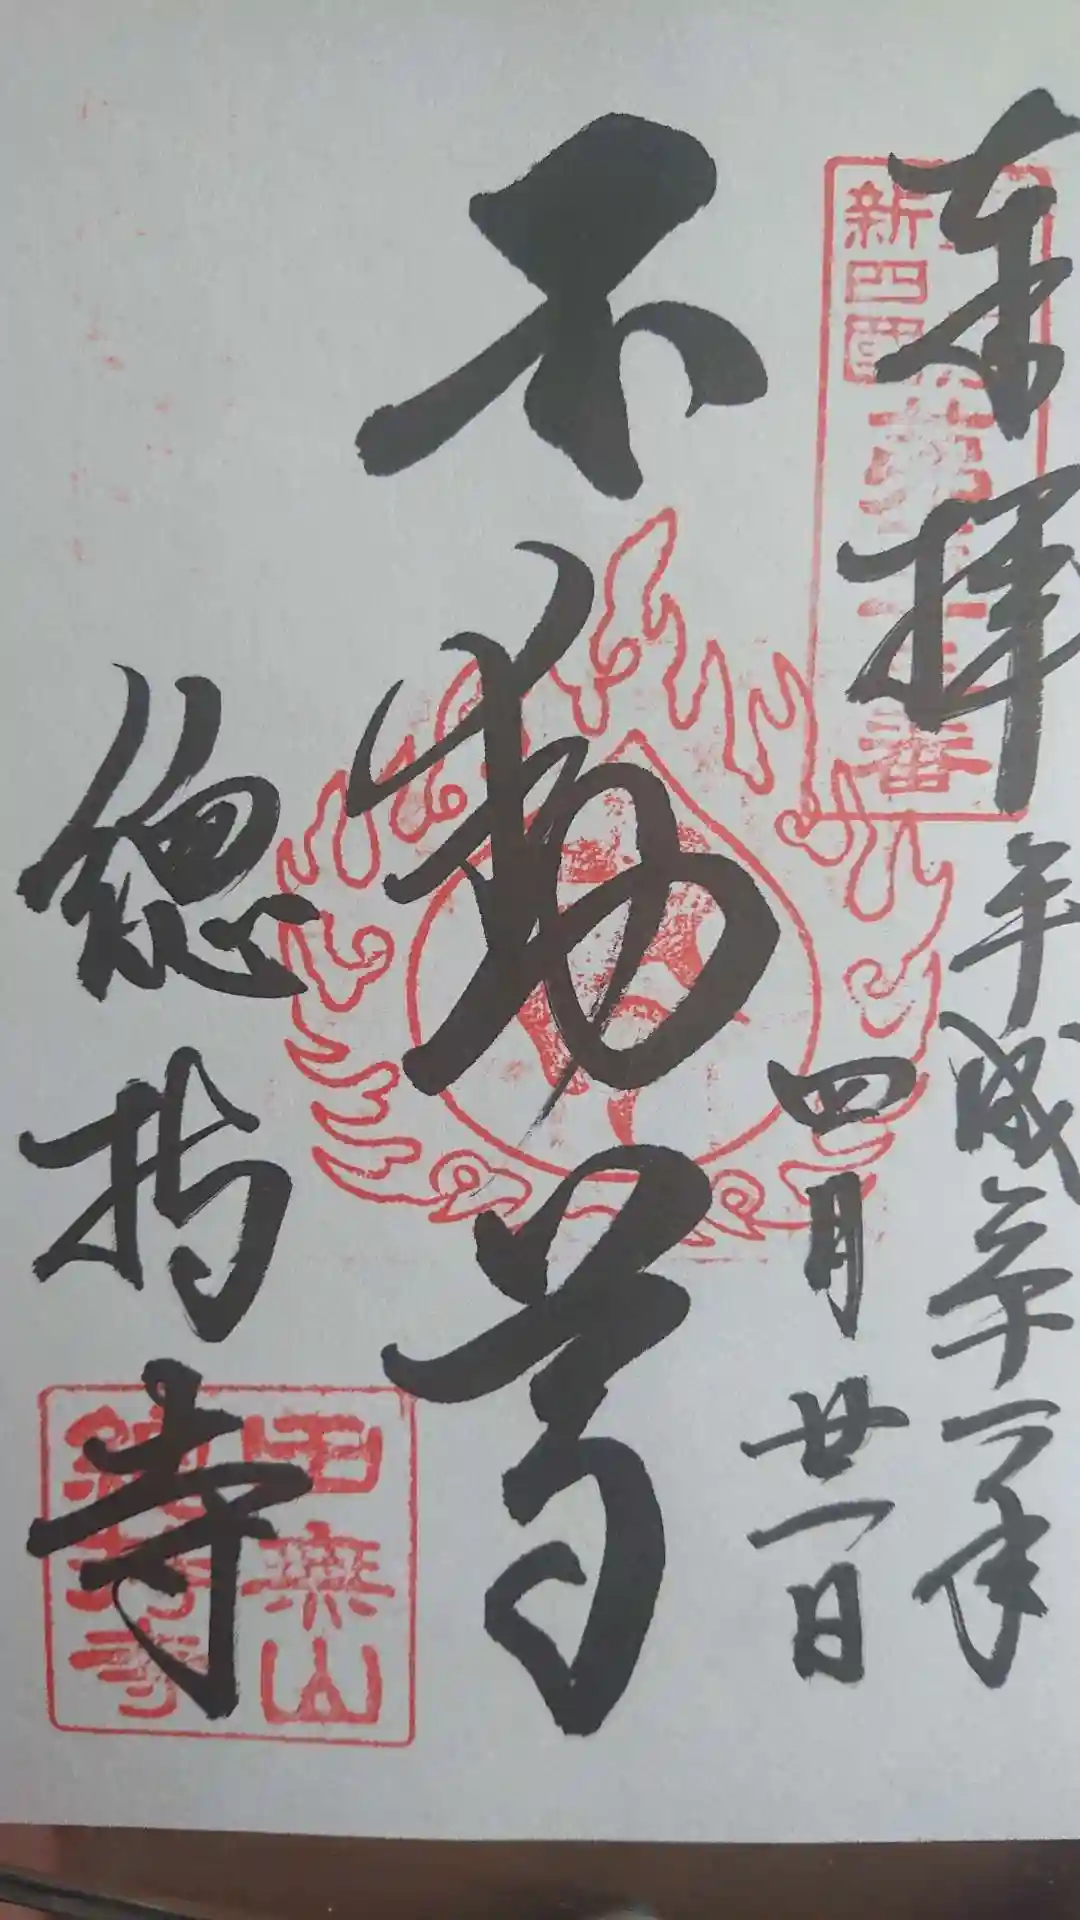 奉拝
平成三十一年
四月廿一日
新四國
番
不動尊
總持寺
田無山
總持寺